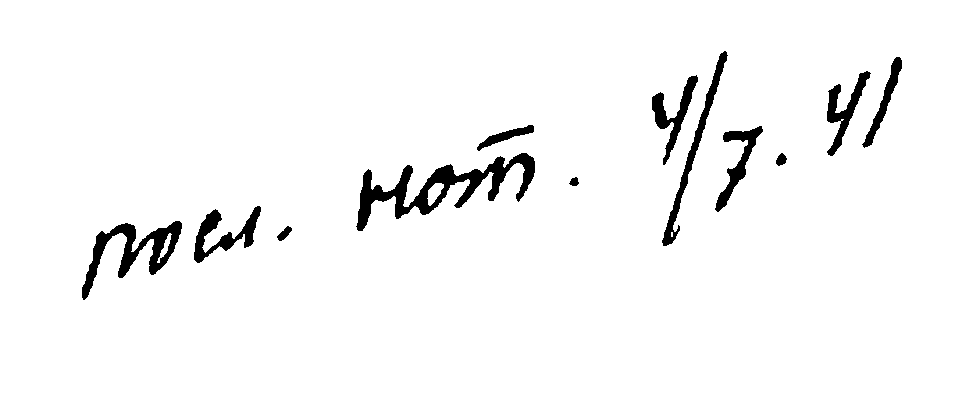 посл. нот. 4/7. 41